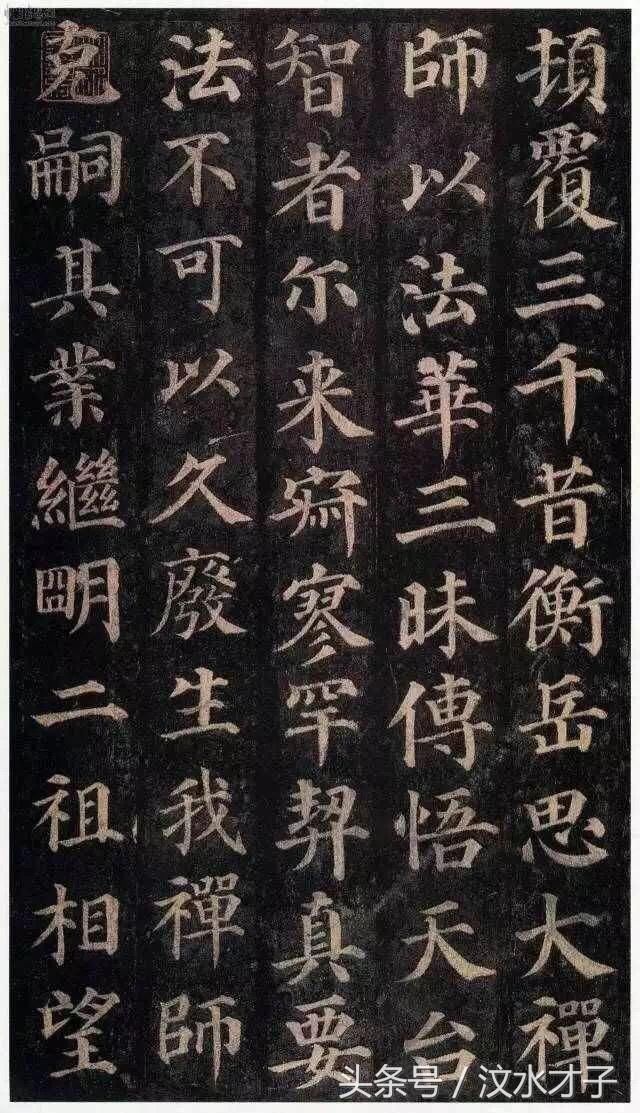 頂覆三千昔衡岳思大禪
師以法華三昧傳悟天台
智者尔来寂寥罕契真要
法不可以久廢生我禪師
克嗣其業繼明二祖相望
头条号 / 汶水才子